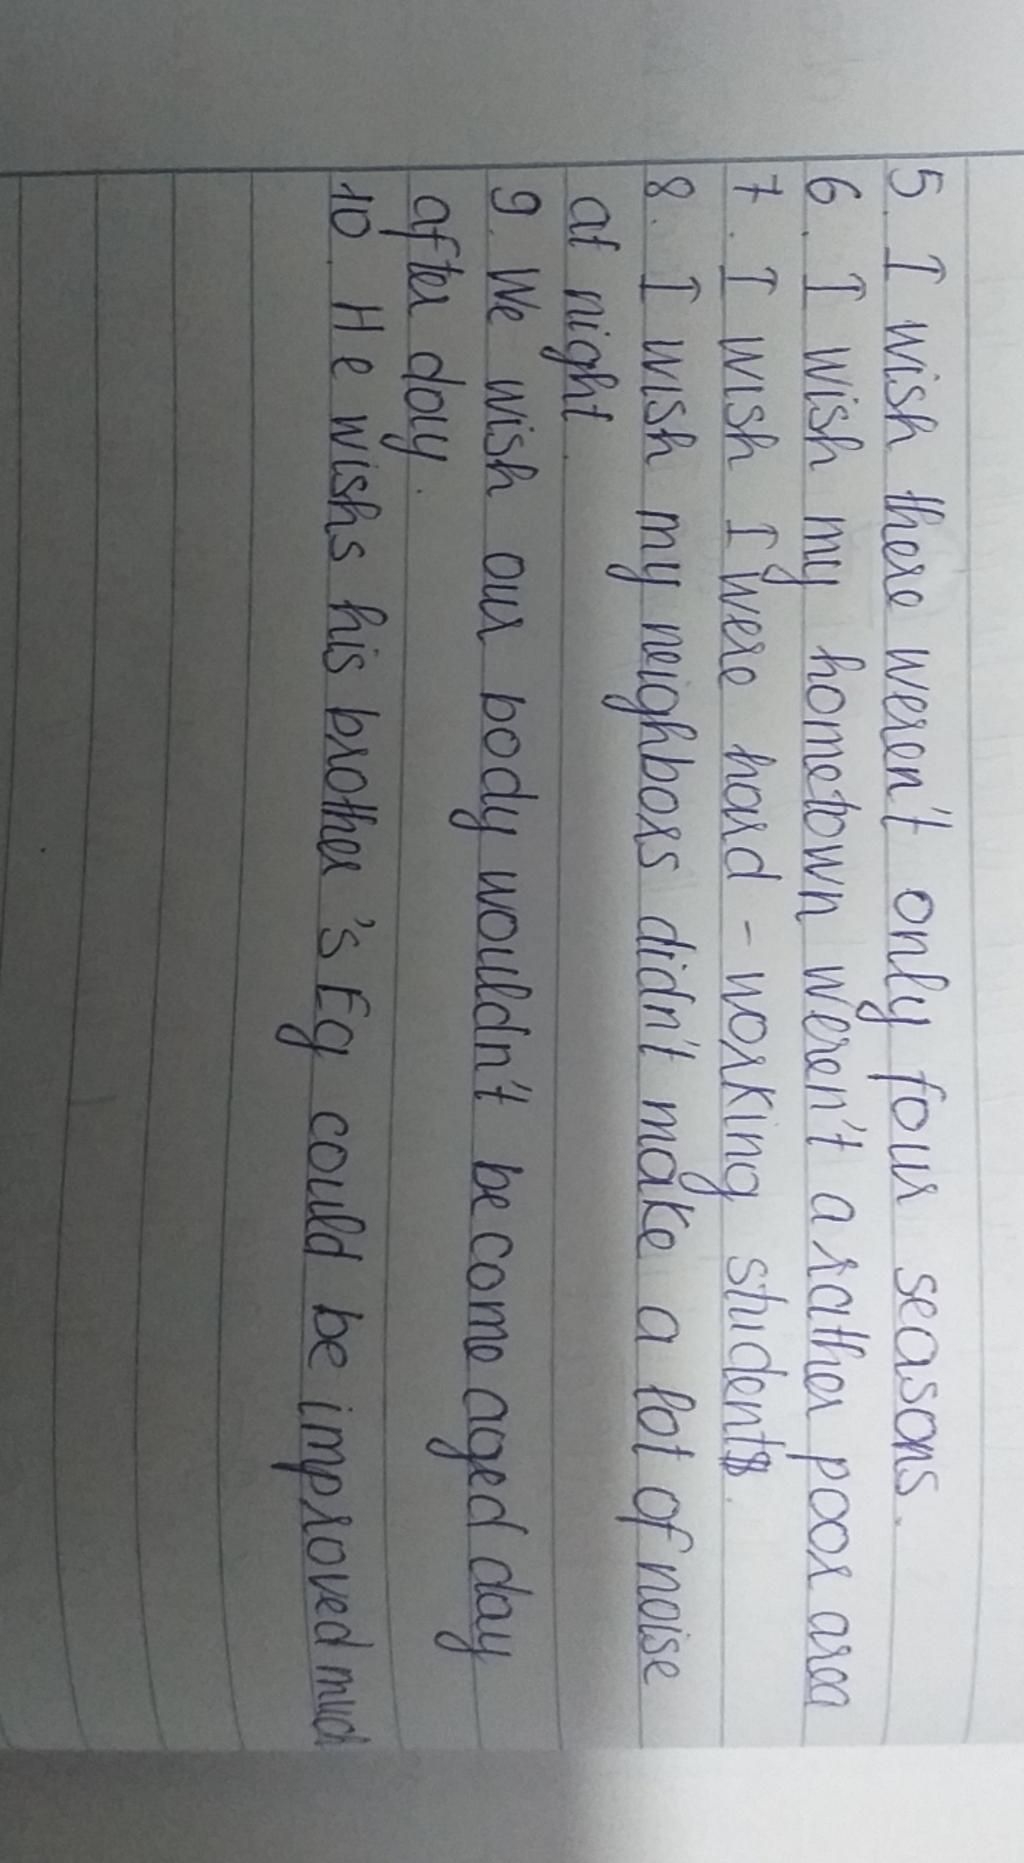 5. I wish there weren't only four seasons.
6. I wish my hometown weren't a rather poor area
7. I wish I were hard-working students.
8. I wish my neighbors didn't make a lot of noise
at night.
9. We wish our body wouldn't become aged day
after day.
10. He wishs his brother's Eg could be improved much